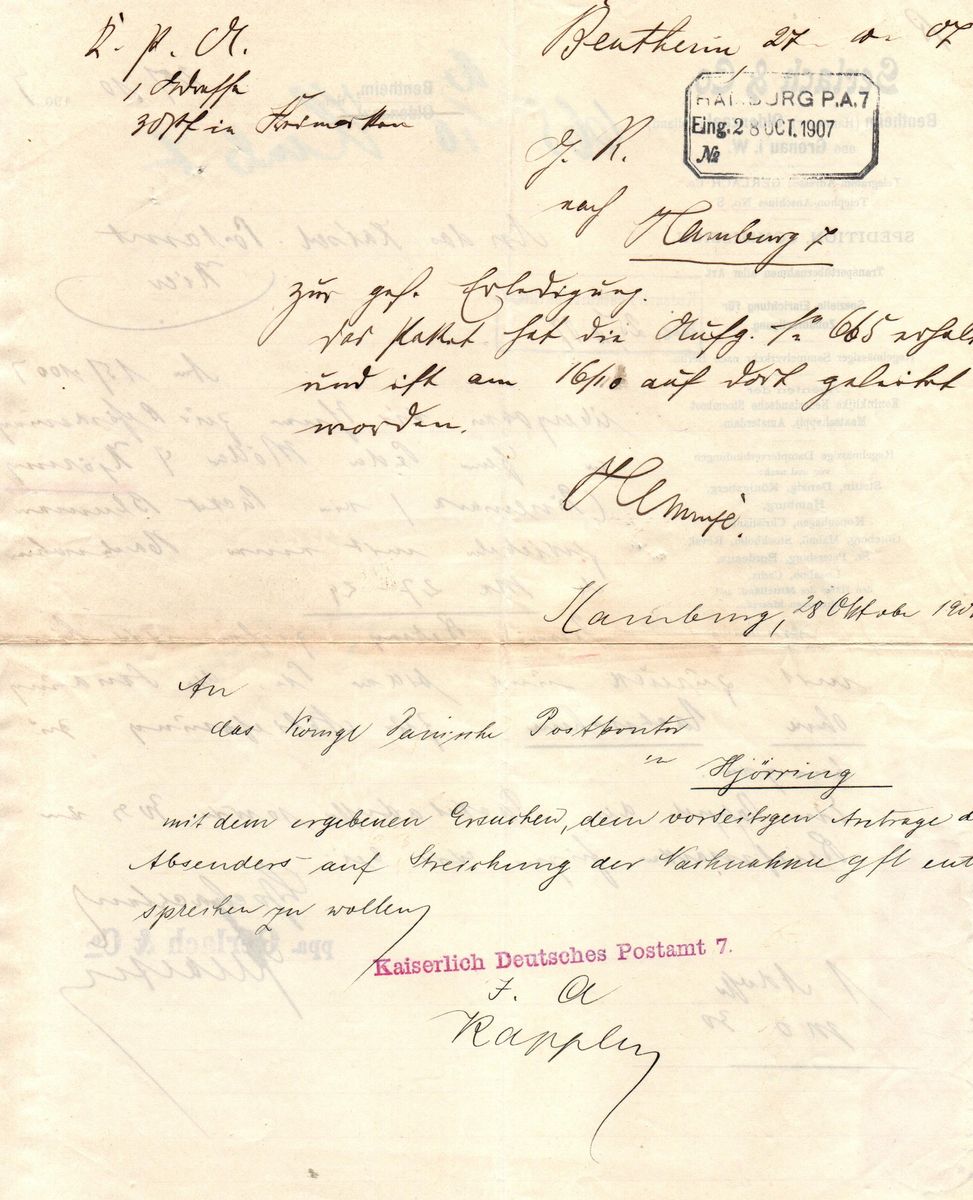 K. P. A.
1 Adresse
30 Pf in Freimarken
Bentheim 27 10 07
HAMBURG P.A.7
Eing. 28 OCT. 1907
№
G. R.
nach
Hamburg 7
zur gefl. Erledigung.
Das Paket hat die Aufg. No 665 erhal
und ist am 16/10 auf dort geleitet
worden.
Hamburg, 28 Oktober 190
An
das Königl Dänische Postkontor
in
Hjörring
mit dem ergebenen Ersuchen, dem vorseitigen Antrage d
Absenders auf Streichung der Nachnahme gfl ent
sprechen zu wollen
Kaiserlich Deutsches Postamt 7.
J. A
Kappler